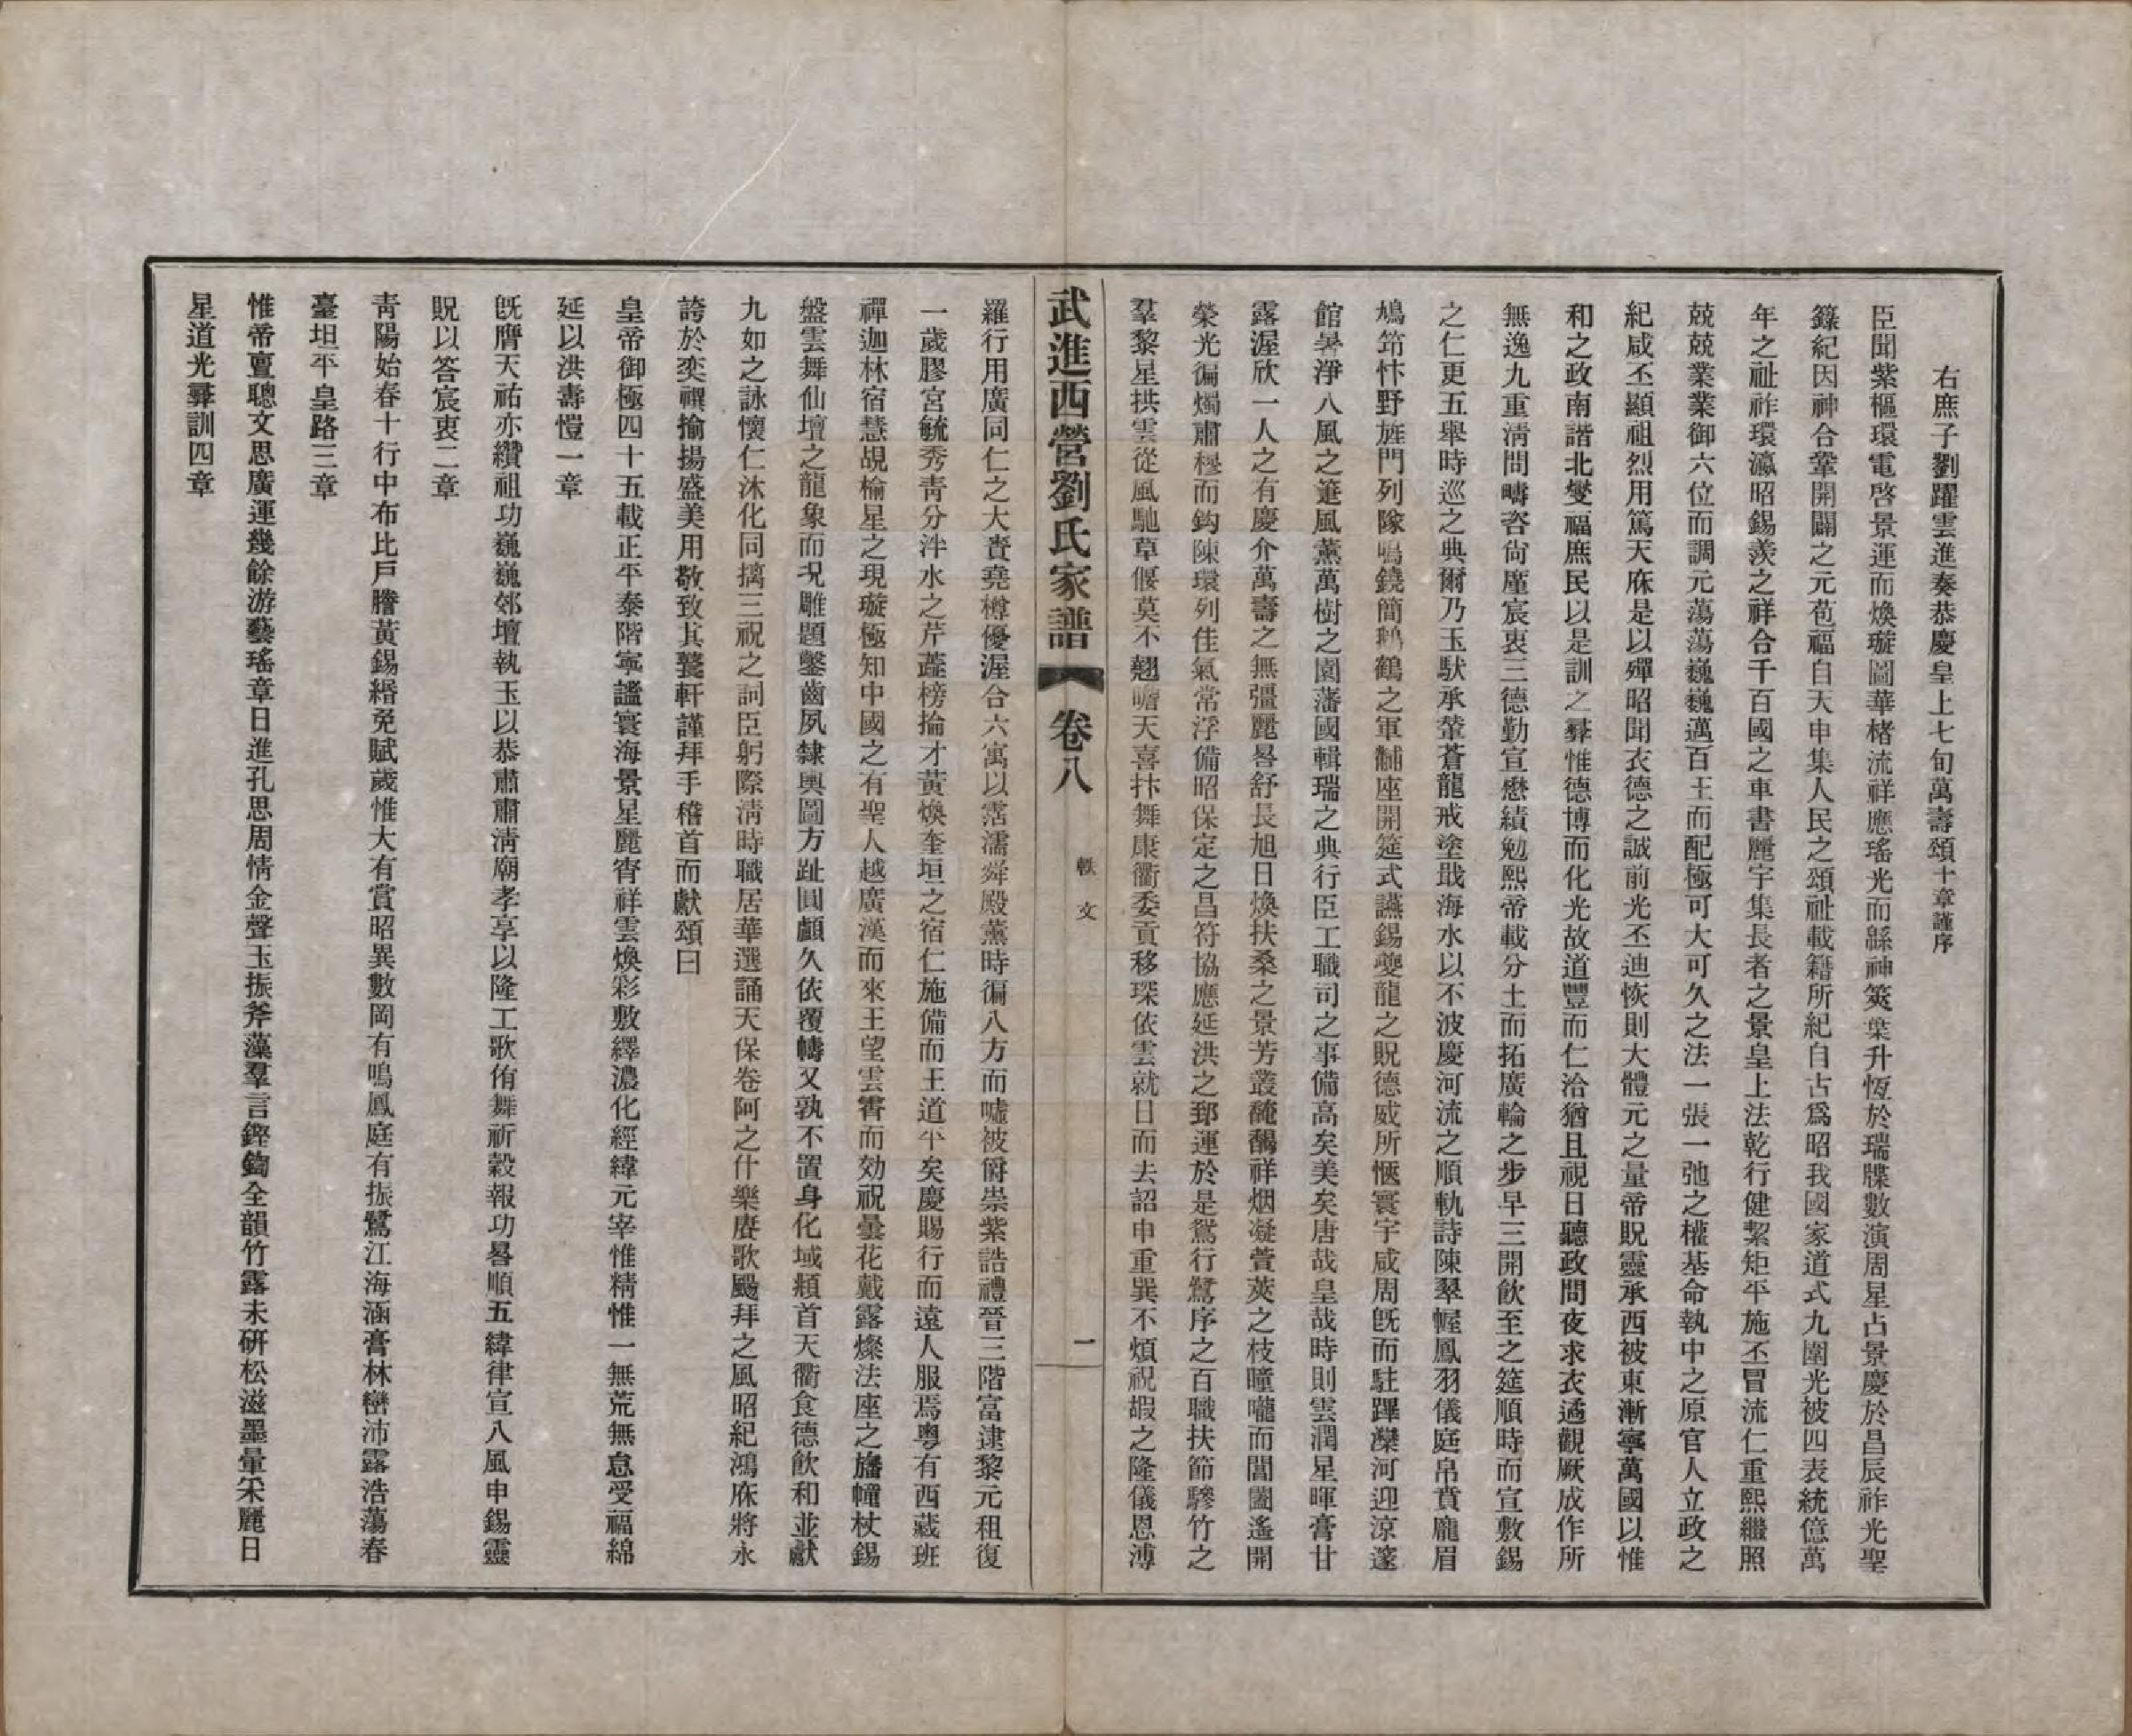 右庶子劉躍雲進奏恭慶皇上七旬萬壽頌十章謹序
臣聞紫樞環電啓景運而煥璇圖華楮流祥應瑤光而緜神筴葉升恆於瑞牒數演周星占景慶於昌辰祚光聖
籙紀因神合肇開闢之元苞福自天申集人民之頌祉載籍所紀自古爲昭我國家道式九圍光被四表統億萬
年之祉祚環瀛昭錫羨之祥合千百國之車書麗宇集長者之景皇上法乾行健絜矩平施丕冒流仁重熙繼照
兢兢業業御六位而調元蕩蕩巍巍邁百王而配極可大可久之法一張一弛之權基命執中之原官人立政之
紀咸丕顯祖烈用篤天庥是以殫昭聞衣德之誠前光丕迪恢則大體元之量帝貺靈承西被東漸寧萬國以惟
和之政南諧北燮福庶民以是訓之彝惟德博而化光故道豐而仁洽猶且視日聽政問夜求衣遹觀厥成作所
無逸九重淸問疇咨尙厪宸衷三德勤宣懋績勉熙帝載分土而拓廣輪之步早三開飲至之筵順時而宣敷錫
之仁更五舉時巡之典爾乃玉馱承輦蒼龍戒塗戢海水以不波慶河流之順軌詩陳翠幄鳳羽儀庭帛賁龐眉
鳩笻忭野旌門列隊鳴鐃簡鵝鶴之軍黼座開筵式讌錫夔龍之貺德威所愜寰宇咸周旣而駐蹕灤河迎涼邃
館暑淨八風之箑風薰萬樹之園藩國輯瑞之典行臣工職司之事備高矣美矣唐哉皇哉時則雲潤星暉膏甘
露渥欣一人之有慶介萬壽之無彊麗晷舒長旭日煥扶桑之景芳叢馣馤祥烟凝蓂莢之枝曈曨而閶闔遙開
榮光徧燭肅穆而鈎陳環列佳氣常浮備昭保定之昌符協應延洪之郅運於是鴛行鷺序之百職扶節驂竹之
羣黎星拱雲從風馳草偃莫不翹瞻天喜抃舞康衢委貢移琛依雲就日而去詔申重巽不煩祝嘏之隆儀恩溥
武進西營劉氏家譜 卷八 軼文 一
羅行用廣同仁之大賚堯樽優渥合六寓以霑濡舜殿薰時徧八方而噓被爵崇紫誥禮晉三階富逮黎元租復
一歲膠宮毓秀靑分泮水之芹蘂榜掄才黃煥奎垣之宿仁施備而王道平矣慶賜行而遠人服焉粤有西藏班
禪迦林宿慧覘楡星之現璇極知中國之有聖人越廣漢而來王望雲霄而効祝曇花戴露燦法座之旛幢杖錫
盤雲舞仙壇之龍象而況雕題鑿齒夙隸輿圖方趾圓顱久依覆幬又孰不置身化域頫首天衢食德飲和並獻
九如之詠懷仁沐化同摛三祝之詞臣躬際淸時職居華選誦天保卷阿之什樂賡歌颺拜之風昭紀鴻庥將永
誇於奕禩揄揚盛美用敬致其鼚軒謹拜手稽首而獻頌曰
皇帝御極四十五載正平泰階寧謐寰海景星麗霄祥雲煥彩敷繹濃化經緯元宰惟精惟一無荒無怠受福綿
延以洪壽愷一章
旣膺天祐亦纘祖功巍巍郊壇執玉以恭肅肅淸廟孝享以隆工歌侑舞祈穀報功晷順五緯律宣八風申錫靈
貺以答宸衷二章
靑陽始春十行中布比戶謄黃錫緡免賦歲惟大有賞昭異數岡有鳴鳳庭有振鷺江海涵膏林巒沛露浩蕩春
臺坦平皇路三章
惟帝亶聰文思廣運幾餘游藝瑤章日進孔思周情金聲玉振斧藻羣言鏗鍧全韻竹露未硏松滋墨暈宋麗日
星道光彝訓四章